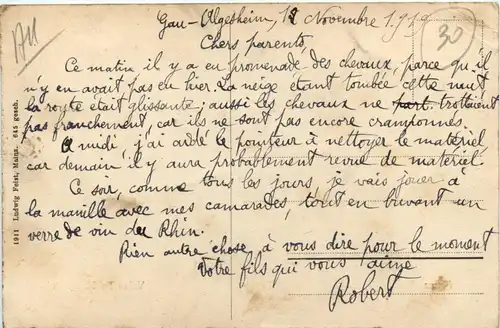 Gau-Algesheim, 12 Novembre 1919
30
Chers parents,
Ce matin il y a eu promenade des chevaux, parce qu'il
n'y en avait pas eu hier. La neige étant tombée cette nuit
la route était glissante; aussi les chevaux ne part. trottaient
pas franchement car ils ne sont pas encore cramponnés.
A midi j'ai aidé le pointeur à nettoyer le matériel
car demain il y aura probablement revue de matériel.
Ce soir, comme tous les jours, je vais jouer à
la manille avec mes camarades, tout en buvant un
verre de vin du Rhin.
Rien autre chose à vous dire pour le moment
Votre fils qui vous aime
Robert
1911 Ludwig Feist, Mainz. 645 gesch.